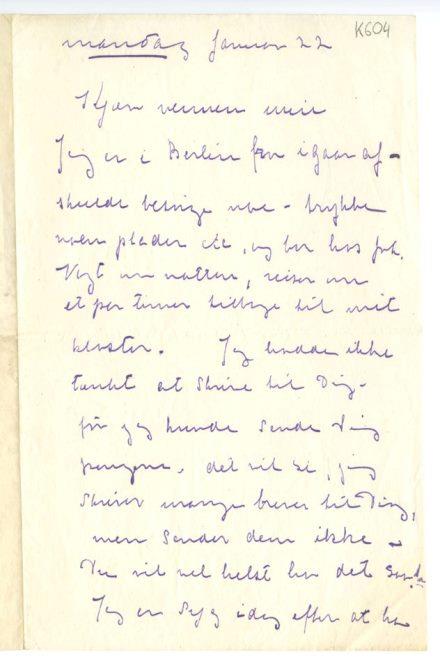 K604
mandag Januar 22
Kjære vennen min
Jeg er i Berlin for igaar af-
skulde besørge noe - trykke
noen plader etc, og bor hos frk.
Vogt om natten, reiser om
et par timer tilbage til mit
kloster. Jeg hadde ikke
tænkt at skrive til Dig -
før jeg kunde sende Dig
pengene. det vil si, jeg
skriver mange breve til Dig,
men sender dem ikke -
Du vil vel helst ha det
Jeg er syg idag efter at ha